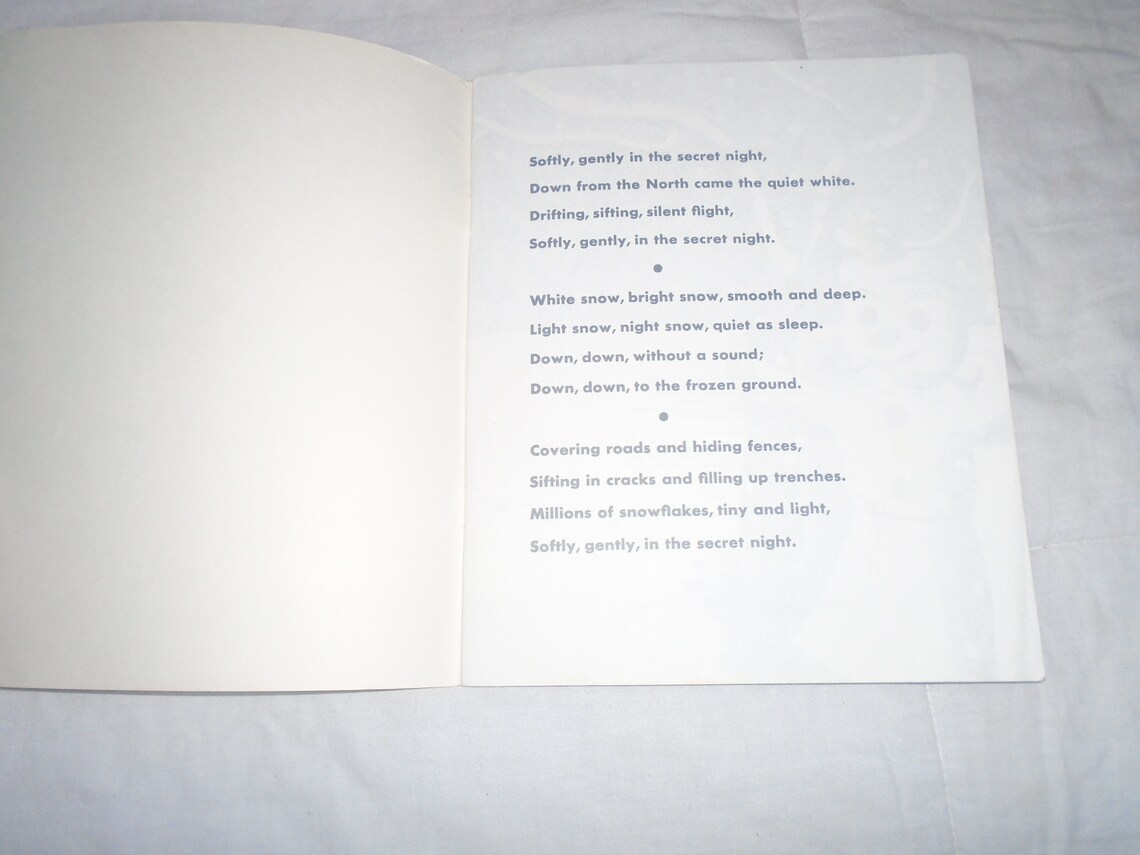 Softly, gently in the secret night,
Down from the North came the quiet white.
Drifting, sifting, silent flight,
Softly, gently, in the secret night.
●
White snow, bright snow, smooth and deep.
Light snow, night snow, quiet as sleep.
Down, down, without a sound;
Down, down, to the frozen ground.
●
Covering roads and hiding fences,
Sifting in cracks and filling up trenches.
Millions of snowflakes, tiny and light,
Softly, gently, in the secret night.